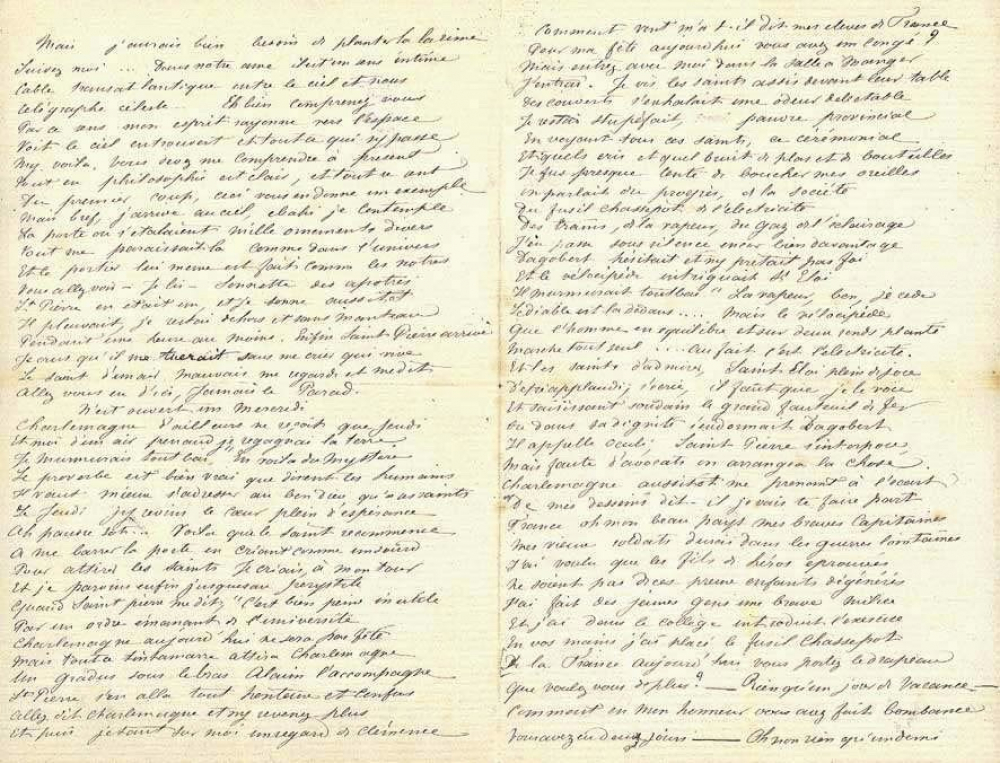 Mais j'aurais bien besoin de planter la la rime
Suivez moi ... Dans notre ame il est un sens intime
Cable transatlantique entre le ciel et nous
télégraphe céleste Eh bien comprenez vous
Par ce sens mon esprit rayonne vers l'espace
Voit le ciel entrouvert et tout ce qui s'y passe
M'y voila, vous devez me comprendre à présent
tout en philosophie est clair, et tout ce
Du premier coup, ceci vous en donne un exemple
Mais bref, j'arrive au ciel, ebahi je contemple
La porte ou s'etalaient mille ornements divers
tout me paraissait la comme dans l'univers
Et le portier lui meme est fait comme les notres
Vous allez voir - Je lis - Sonnette des apotres
St Pierre en était un, et je sonne aussitot
Il pleuvait, je restai dehors et sans manteau
Pendant une heure au moins. Enfin Saint Pierre arrive
Je crus qu'il me tuerait sans me crier qui vive
Le saint d'humeur mauvaise me regarde et me dit
Allez vous en d'ici, Jamais le Parad.
N'est ouvert un Mercredi
Charlemagne d'ailleurs ne reçoit que Jeudi
Et moi d'un air penaud je regagnai la terre
Je murmurais tout bas, "En voila du mystère
Le proverbe est bien vrai que disent les humains
Il vaut mieux s'adresser au bon Dieu qu'a ses saints
Le Jeudi j'y revins le cœur plein d'espérance
Ah pauvre sot... Voila que le saint recommence
A me barrer la porte en criant comme un sourd
Pour attirer les saints Je criais, à mon tour
Et je parvins enfin jusques au perystile
Quand Saint pierre me dit, "C'est bien peine inutile
Par un ordre emanant de l'université
Charlemagne aujourd'hui ne sera pas fêté
Mais tout ce tintamarre attira Charlemagne
Un gradus sous le bras Alcuin l'accompagne
St Pierre s'en alla tout honteux et confus
Allez dit Charlemagne et n'y revenez plus
Et puis jetant sur moi un regard de clémence
Comment vont m'a t-il dit mes eleves de France
Pour ma fête aujourd'hui vous avez eu congé ?
Mais entrez avec moi dans la salle a Manger
J'entrai. Je vis les saints assis devant leur table
Des couverts s'exhalait une odeur delectable
Je restai stupéfait, pauvre provincial
En voyant tous ces saints, ce cérémonial
Et quels cris et quel bruit de plats et de bouteilles
Je fus presque tenté de boucher mes oreilles
On parlait du progrès, de la société
Du fusil Chassepot de l'electricité
Des trains, de la vapeur, du gaz et l'éclairage
J'en passe sous silence encor bien davantage
Dagobert hésitait et n'y pretait pas foi
Et le vélocipède intriguait St Eloi
Il murmurait tout bas "La vapeur, bon, je cede
Le diable est la dedans .... Mais le vélocipède
Que l'homme en équilibre et sur deux pieds plante
Marche tout seul .... Au fait c'est l'electricité.
Et les saints d'admirer, Saint Eloi plein de force
D'etre applaudi; s'écrie, il faut que je le voie
Et saisissant soudain le grand fauteuil de fer
Ou dans sa dignité s'endormait Dagobert
Il appelle Oculi; Saint Pierre s'interpose
Mais faute d'avocats on arrangea la chose.
Charlemagne aussitot me prenant à l'écart
"De mes desseins dit-il je vais te faire part
France oh mon beau pays mes braves Capitaines
Mes vieux soldats durcis dans les guerres lointaines
J'ai voulu que les fils de héros éprouvés
Ne soient pas de ces preux enfants dégénérés
J'ai fait des jeunes gens une brave milice
Et j'ai dans le collége introduit l'exercice
En vos mains j'ai placé le fusil Chassepot
De la France aujourd'hui vous portez le drapeau
Que voulez vous de plus ? — Rien qu'un jour de Vacance —
Comment en mon honneur vous avez fait bombance
Vous avez eu deux jours — Oh non rien qu'un demi